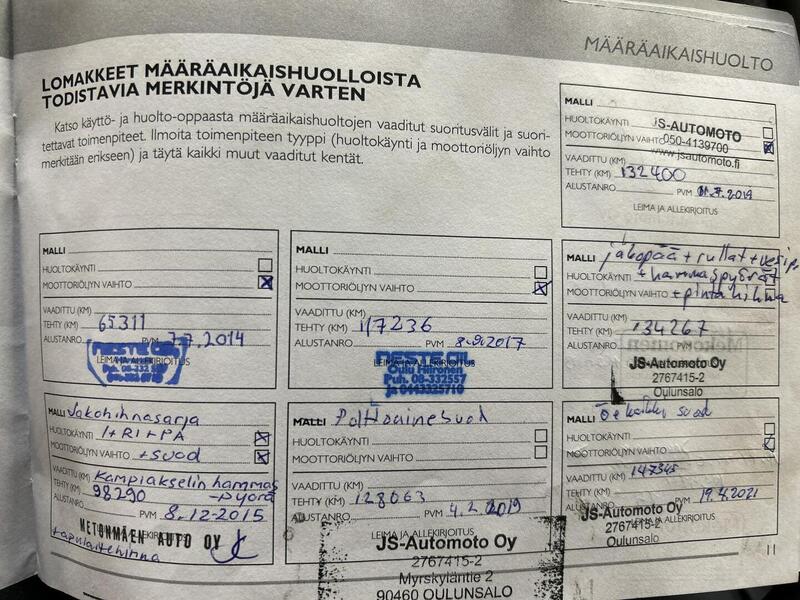 MÄÄRÄAIKAISHUOLTO
LOMAKKEET MÄÄRÄAIKAISHUOLLOISTA
TODISTAVIA MERKINTÖJÄ VARTEN
Katso käyttö- ja huolto-oppaasta määräaikaishuoltojen vaaditut suoritusvälit ja suori-
tettavat toimenpiteet. Ilmoita toimenpiteen tyyppi (huoltokäynti ja moottoriöljyn vaihto
merkitään erikseen) ja täytä kaikki muut vaaditut kentät.
MALLI
JS-AUTOMOTO
HUOLTOKÄYNTI
050-4139700
MOOTTORIÖLJYN VAIHTO
www.jsautomoto.fi
VAADITTU (KM)
TEHTY (KM) 132400
ALUSTANRO PVM 11.7.2019
LEIMA JA ALLEKIRJOITUS
MALLI
HUOLTOKÄYNTI
MOOTTORIÖLJYN VAIHTO
VAADITTU (KM)
TEHTY (KM) 65311
ALUSTANRO PVM 7.7.2014
LEIMA JA ALLEKIRJOITUS
NESTE OIL
MALLI
HUOLTOKÄYNTI
MOOTTORIÖLJYN VAIHTO
VAADITTU (KM)
TEHTY (KM) 117236
ALUSTANRO PVM 8.9.2017
LEIMA JA ALLEKIRJOITUS
NESTE OIL
Oulu Hiironen
Puh. 08-332557
ja 0443325710
MALLI jakopää + rullat + vesip
HUOLTOKÄYNTI + hammaspyörät
MOOTTORIÖLJYN VAIHTO + pintahihna
VAADITTU (KM)
TEHTY (KM) 134267
ALUSTANRO
JS-Automoto Oy
2767415-2
Oulunsalo
MALLI Jakohihnasarja
HUOLTOKÄYNTI 1+R1+PA
MOOTTORIÖLJYN VAIHTO + suod
VAADITTU (KM) Kampiakselin hammas
TEHTY (KM) 98290 -pyörä
ALUSTANRO PVM 8.12-2015
LEIMA JA ALLEKIRJOITUS
METONMÄEN AUTO OY
+apulaitehihna
MALLI Polttoainesuod
HUOLTOKÄYNTI
MOOTTORIÖLJYN VAIHTO
VAADITTU (KM)
TEHTY (KM) 128063
ALUSTANRO PVM 4.2.2019
LEIMA JA ALLEKIRJOITUS
JS-Automoto Oy
2767415-2
Myrskyläntie 2
90460 OULUNSALO
MALLI
kaikki suod
HUOLTOKÄYNTI
MOOTTORIÖLJYN VAIHTO
VAADITTU (KM) 147345
TEHTY (KM)
ALUSTANRO PVM 19.4.2021
LEIMA JA ALLEKIRJOITUS
JS-Automoto Oy
2767415-2
Oulunsalo
11